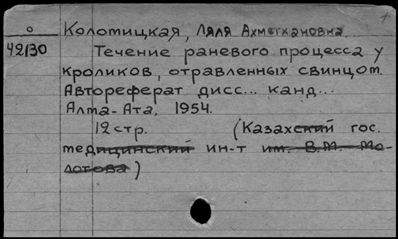 о Колотицкая, Ляля Ахметхановна
42130 Течение раневого процесса у
кроликов, отравленных свинцом.
Автореферат дисс... канд...
Алма-Ата, 1954.
12 стр. (Казахский гос.
медицинский ин-т им. В.М. Мо-
лотова)